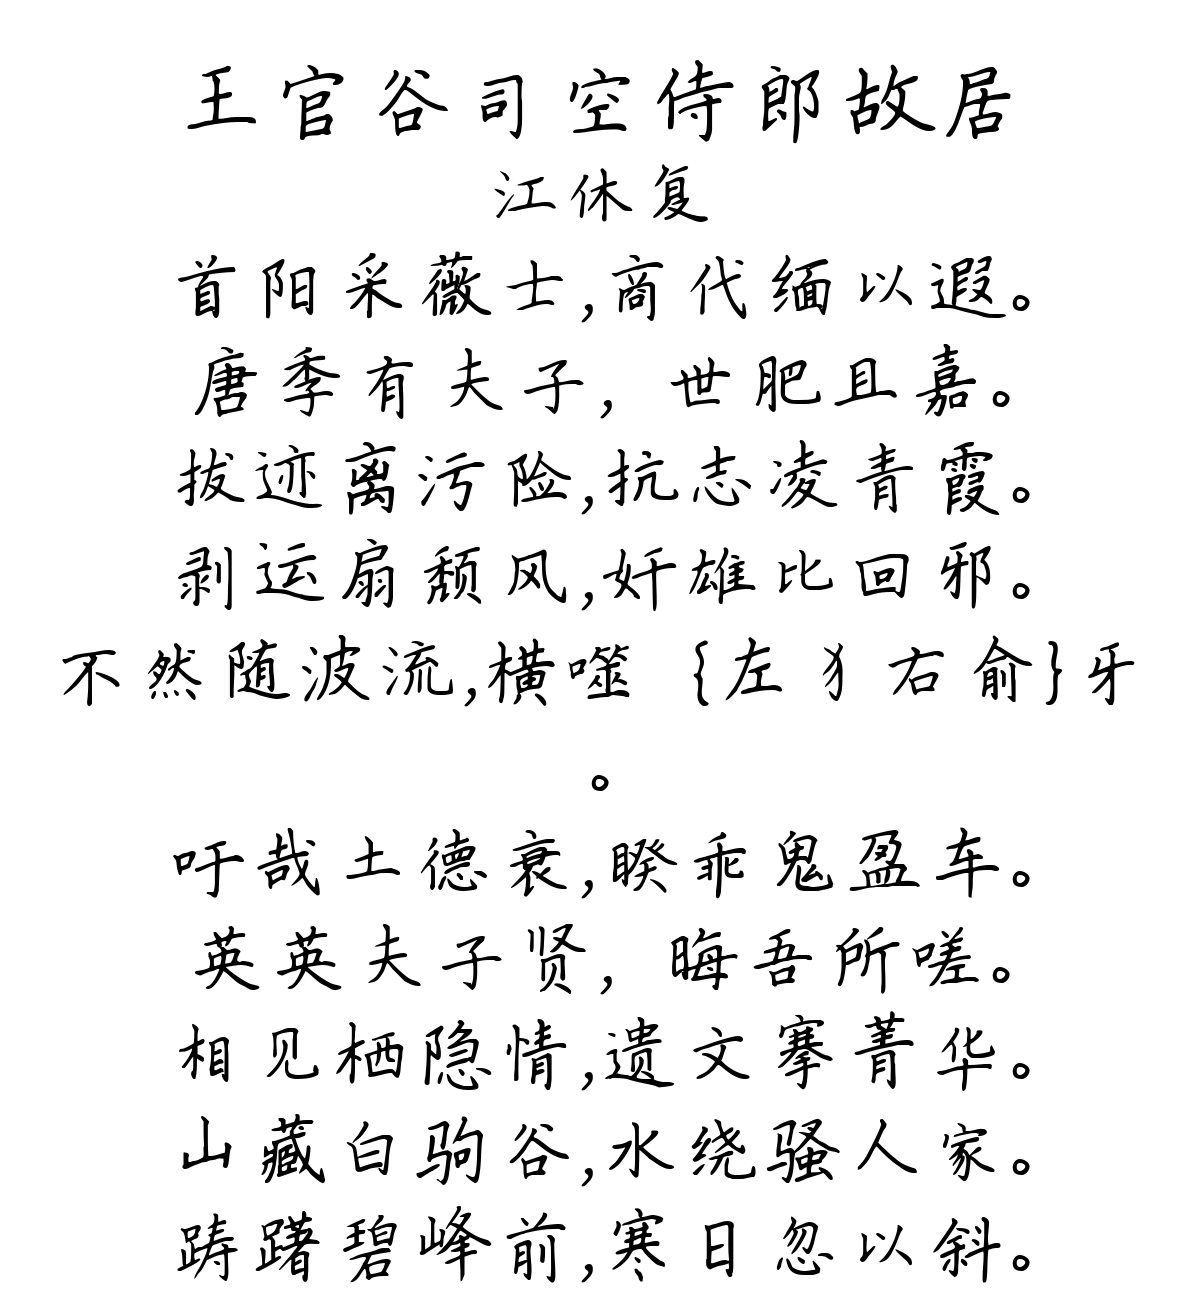 王官谷司空侍郎故居
江休复
首阳采薇士,商代缅以遐。
唐季有夫子，世肥且嘉。
拔迹离污险,抗志凌青霞。
剥运扇颓风,奸雄比回邪。
不然随波流,横噬 {左犭右俞}牙
。
吁哉土德衰,睽乖鬼盈车。
英英夫子贤，晦吾所嗟。
相见栖隐情,遗文搴菁华。
山藏白驹谷,水绕骚人家。
踌躇碧峰前,寒日忽以斜。